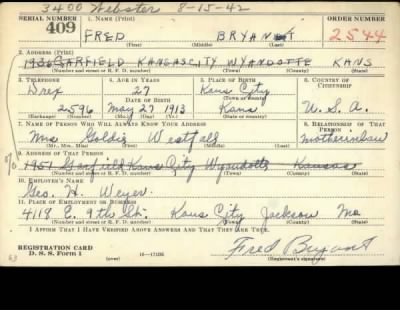 3400 Webster 8-15-42
SERIAL NUMBER 1. NAME (Print) ORDER NUMBER
409 FRED BRYANT 2544
(First) (Middle) (Last)
2. ADDRESS (Print)
GARFIELD KANSAS CITY WYANDOTTE KANS
(Number and street or R. F. D. number) (Town) (County) (State)
3. TELEPHONE 4. AGE IN YEARS 5. PLACE OF BIRTH 6. COUNTRY OF CITIZENSHIP
Drex 27 Kans City
DATE OF BIRTH
2596 May 27 1913 Kans U.S.A.
(Exchange) (Number) (Mo.) (Day) (Yr.) (State or country)
7. NAME OF PERSON WHO WILL ALWAYS KNOW YOUR ADDRESS 8. RELATIONSHIP OF THAT PERSON
Mrs Goldie Westfall motherinlaw
(Mr., Mrs., Miss) (First) (Middle) (Last)
9. ADDRESS OF THAT PERSON
% 1951 Garfield Kans City Wyandotte Kansas
(Number and street or R. F. D. number) (Town) (County) (State)
10. EMPLOYER'S NAME
Geo. H. Weyer
11. PLACE OF EMPLOYMENT OR BUSINESS
4118 E. 9th St. Kans City Jackson Mo
(Number and street or R. F. D. number) (Town) (County) (State)
I AFFIRM THAT I HAVE VERIFIED ABOVE ANSWERS AND THAT THEY ARE TRUE.
REGISTRATION CARD
D. S. S. Form 1 (over) 16—17105 Fred Bryant
(Registrant's signature)